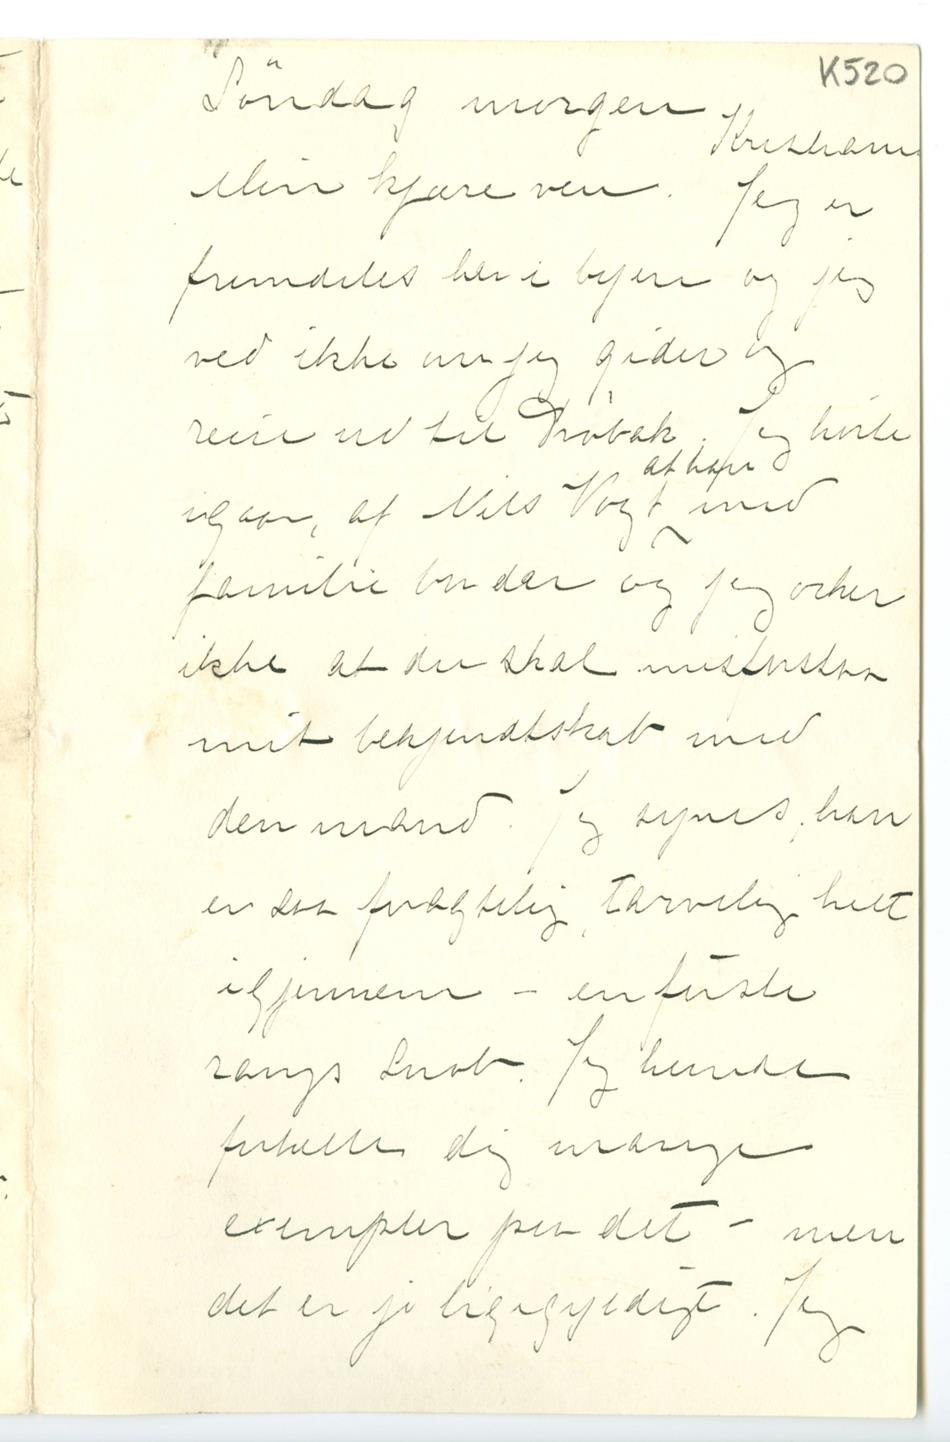 K520
Söndag morgen
Kristiania
Min kjære ven. Jeg er
fremdeles her i byen og jeg
ved ikke om jeg gider og
reise ud til Dröbak. Jeg hørte
igaar, af Nils Vogt at han med
familie bor der og jeg orker
ikke at du skal misforstaa
mit bekjendtskab med
den mand. Jeg synes, han
er saa frygtelig, tarvelig helt
igjennem – en første
rangs Snob. Jeg kunde
fortælle dig mange
exempler paa det – men
det er jo ligegyldigt. Jeg